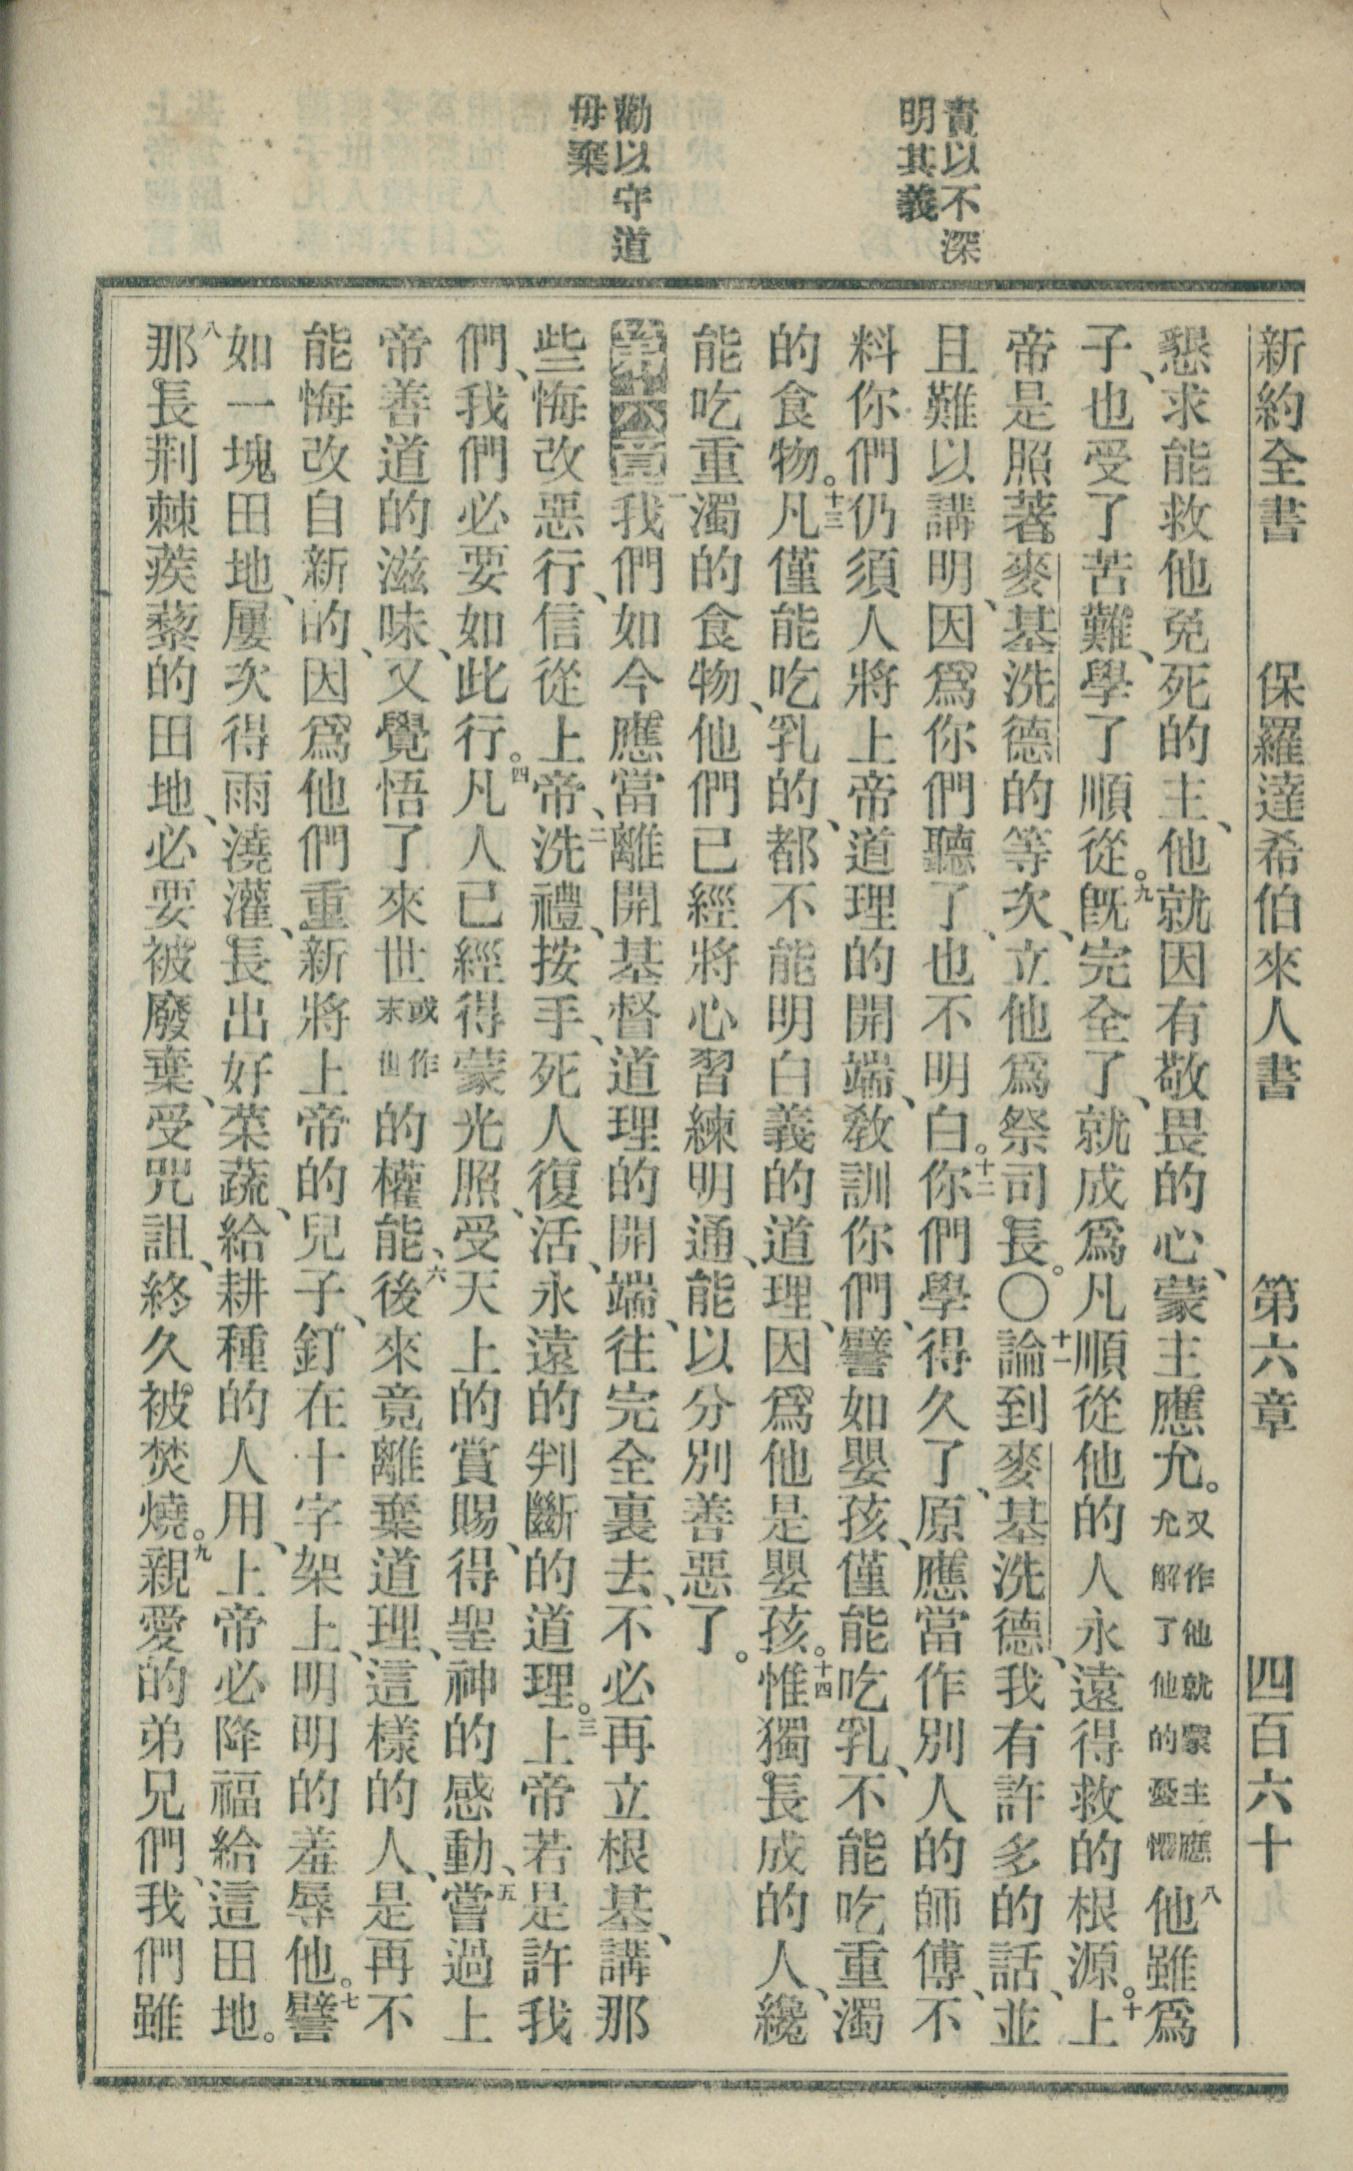 新約全書　保羅達希伯來人書　第六章　四百六十九
責以不深
明其義
勸以守道
毋棄
懇求能救他免死的主、他就因有敬畏的心、蒙主應允。又作他就蒙主應允解了他的憂懼八他雖爲
子、也受了苦難、學了順從。九旣完全了、就成爲凡順從他的人永遠得救的根源。十上
帝是照著麥基洗德的等次、立他爲祭司長。〇十一論到麥基洗德、我有許多的話、並
且難以講明、因爲你們聽了、也不明白。十二你們學得久了、原應當作別人的師傅、不
料你們仍須人將上帝道理的開端、敎訓你們、譬如嬰孩、僅能吃乳、不能吃重濁
的食物。十三凡僅能吃乳的、都不能明白義的道理、因爲他是嬰孩。十四惟獨長成的人、纔
能吃重濁的食物、他們已經將心習練明通、能以分別善惡了。
第六章一我們如今應當離開基督道理的開端、往完全裏去、不必再立根基、講那
些悔改惡行、信從上帝、二洗禮、按手、死人復活、永遠的判斷的道理。三上帝若是許我
們、我們必要如此行。四凡人已經得蒙光照、受天上的賞賜、得聖神的感動、五嘗過上
帝善道的滋味、又覺悟了來世或作末世的權能、六後來竟離棄道理、這樣的人、是再不
能悔改自新的、因爲他們重新將上帝的兒子、釘在十字架上、明明的羞辱他。七譬
如一塊田地、屢次得雨澆灌、長出好菜蔬、給耕種的人用、上帝必降福給這田地。
八那長荆棘蒺藜的田地、必要被廢棄、受咒詛、終久被焚燒。九親愛的弟兄們、我們雖